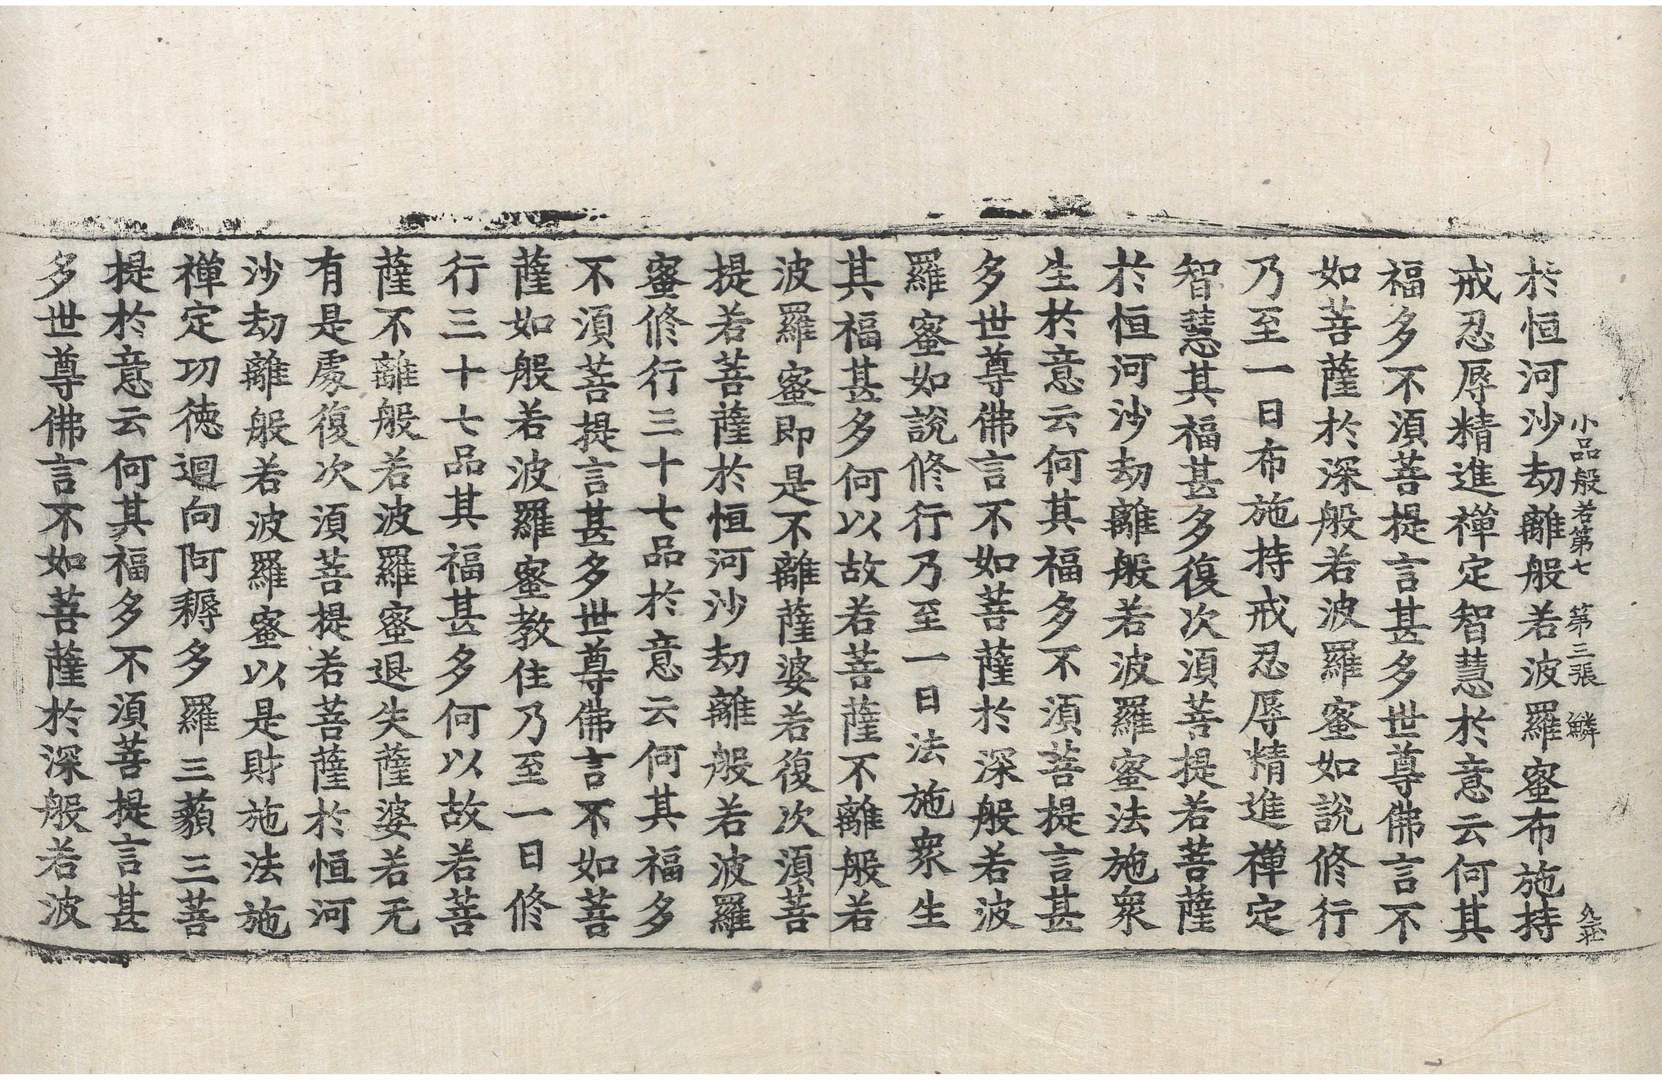 小品般若第七 第三張 鱗
於恒河沙劫離般若波羅蜜布施持
戒忍辱精進禪定智慧於意云何其
福多不須菩提言甚多世尊佛言不
如菩薩於深般若波羅蜜如說修行
乃至一日布施持戒忍辱精進禪定
智慧其福甚多復次須菩提若菩薩
於恒河沙劫離般若波羅蜜法施衆
生於意云何其福多不須菩提言甚
多世尊佛言不如菩薩於深般若波
羅蜜如說修行乃至一日法施衆生
其福甚多何以故若菩薩不離般若
波羅蜜即是不離薩婆若復次須菩
提若菩薩於恒河沙劫離般若波羅
蜜修行三十七品於意云何其福多
不須菩提言甚多世尊佛言不如菩
薩如般若波羅蜜教住乃至一日修
行三十七品其福甚多何以故若菩
薩不離般若波羅蜜退失薩婆若无
有是處復次須菩提若菩薩於恒河
沙劫離般若波羅蜜以是財施法施
禪定功德迴向阿耨多羅三藐三菩
提於意云何其福多不須菩提言甚
多世尊佛言不如菩薩於深般若波